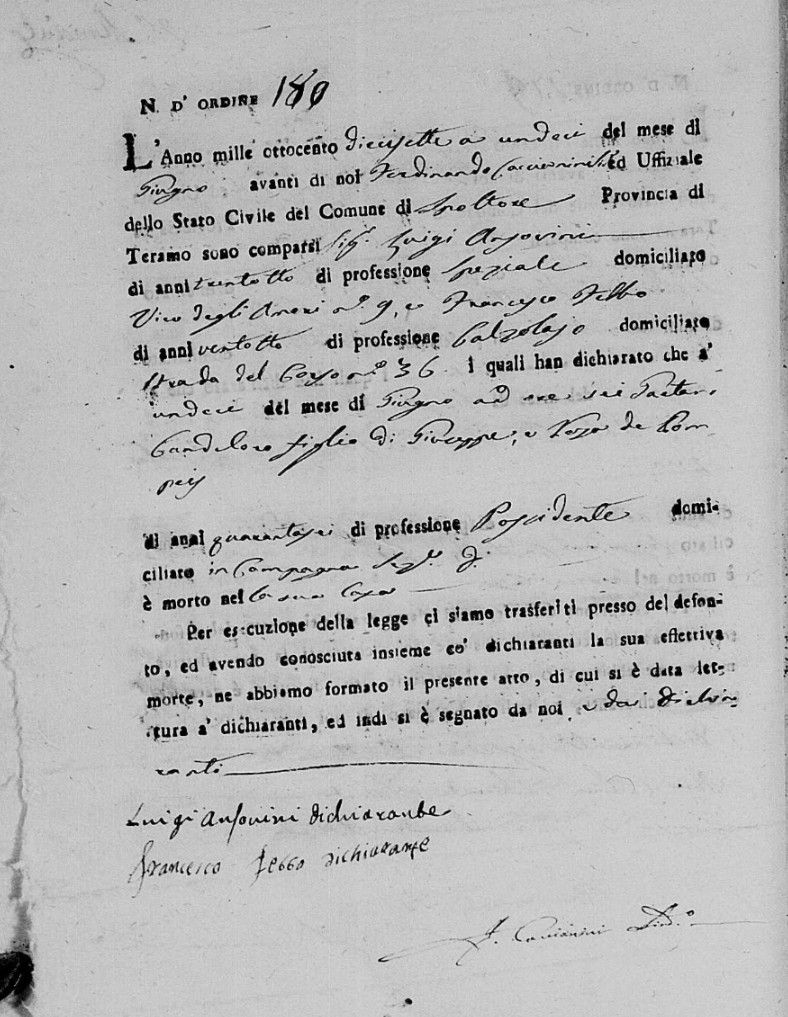 N. D' ORDINE 180
L'Anno mille ottocento diecisette a undeci del mese di
Giugno avanti di noi Ferdinando ed Uffiziale
dello Stato Civile del Comune di Spoltore Provincia di
Teramo sono comparsi Sig.r Luigi Ansovini
di anni trentotto di professione Speziale domiciliato
Vico degli n.o 9, e Francesco Febbo
di anni ventotto di professione Calzolajo domiciliato
strada del Corso n.o 36. i quali han dichiarato che a'
undeci del mese di Giugno ad ore sei Gaetano
figlio di Giuseppe, e de Pom-
peis
di anni quarantasei di professione Possidente domi-
ciliato in Campagna
è morto nel la sua Casa
Per esecuzione della legge ci siamo trasferiti presso del defon-
to, ed avendo conosciuta insieme co' dichiaranti la sua effettiva
morte, ne abbiamo formato il presente atto, di cui si è data let-
tura a' dichiaranti, ed indi si è segnato da noi e dai dichia-
ranti
Luigi Ansovini dichiarante
Francesco Febbo dichiarante
F. Sind.o